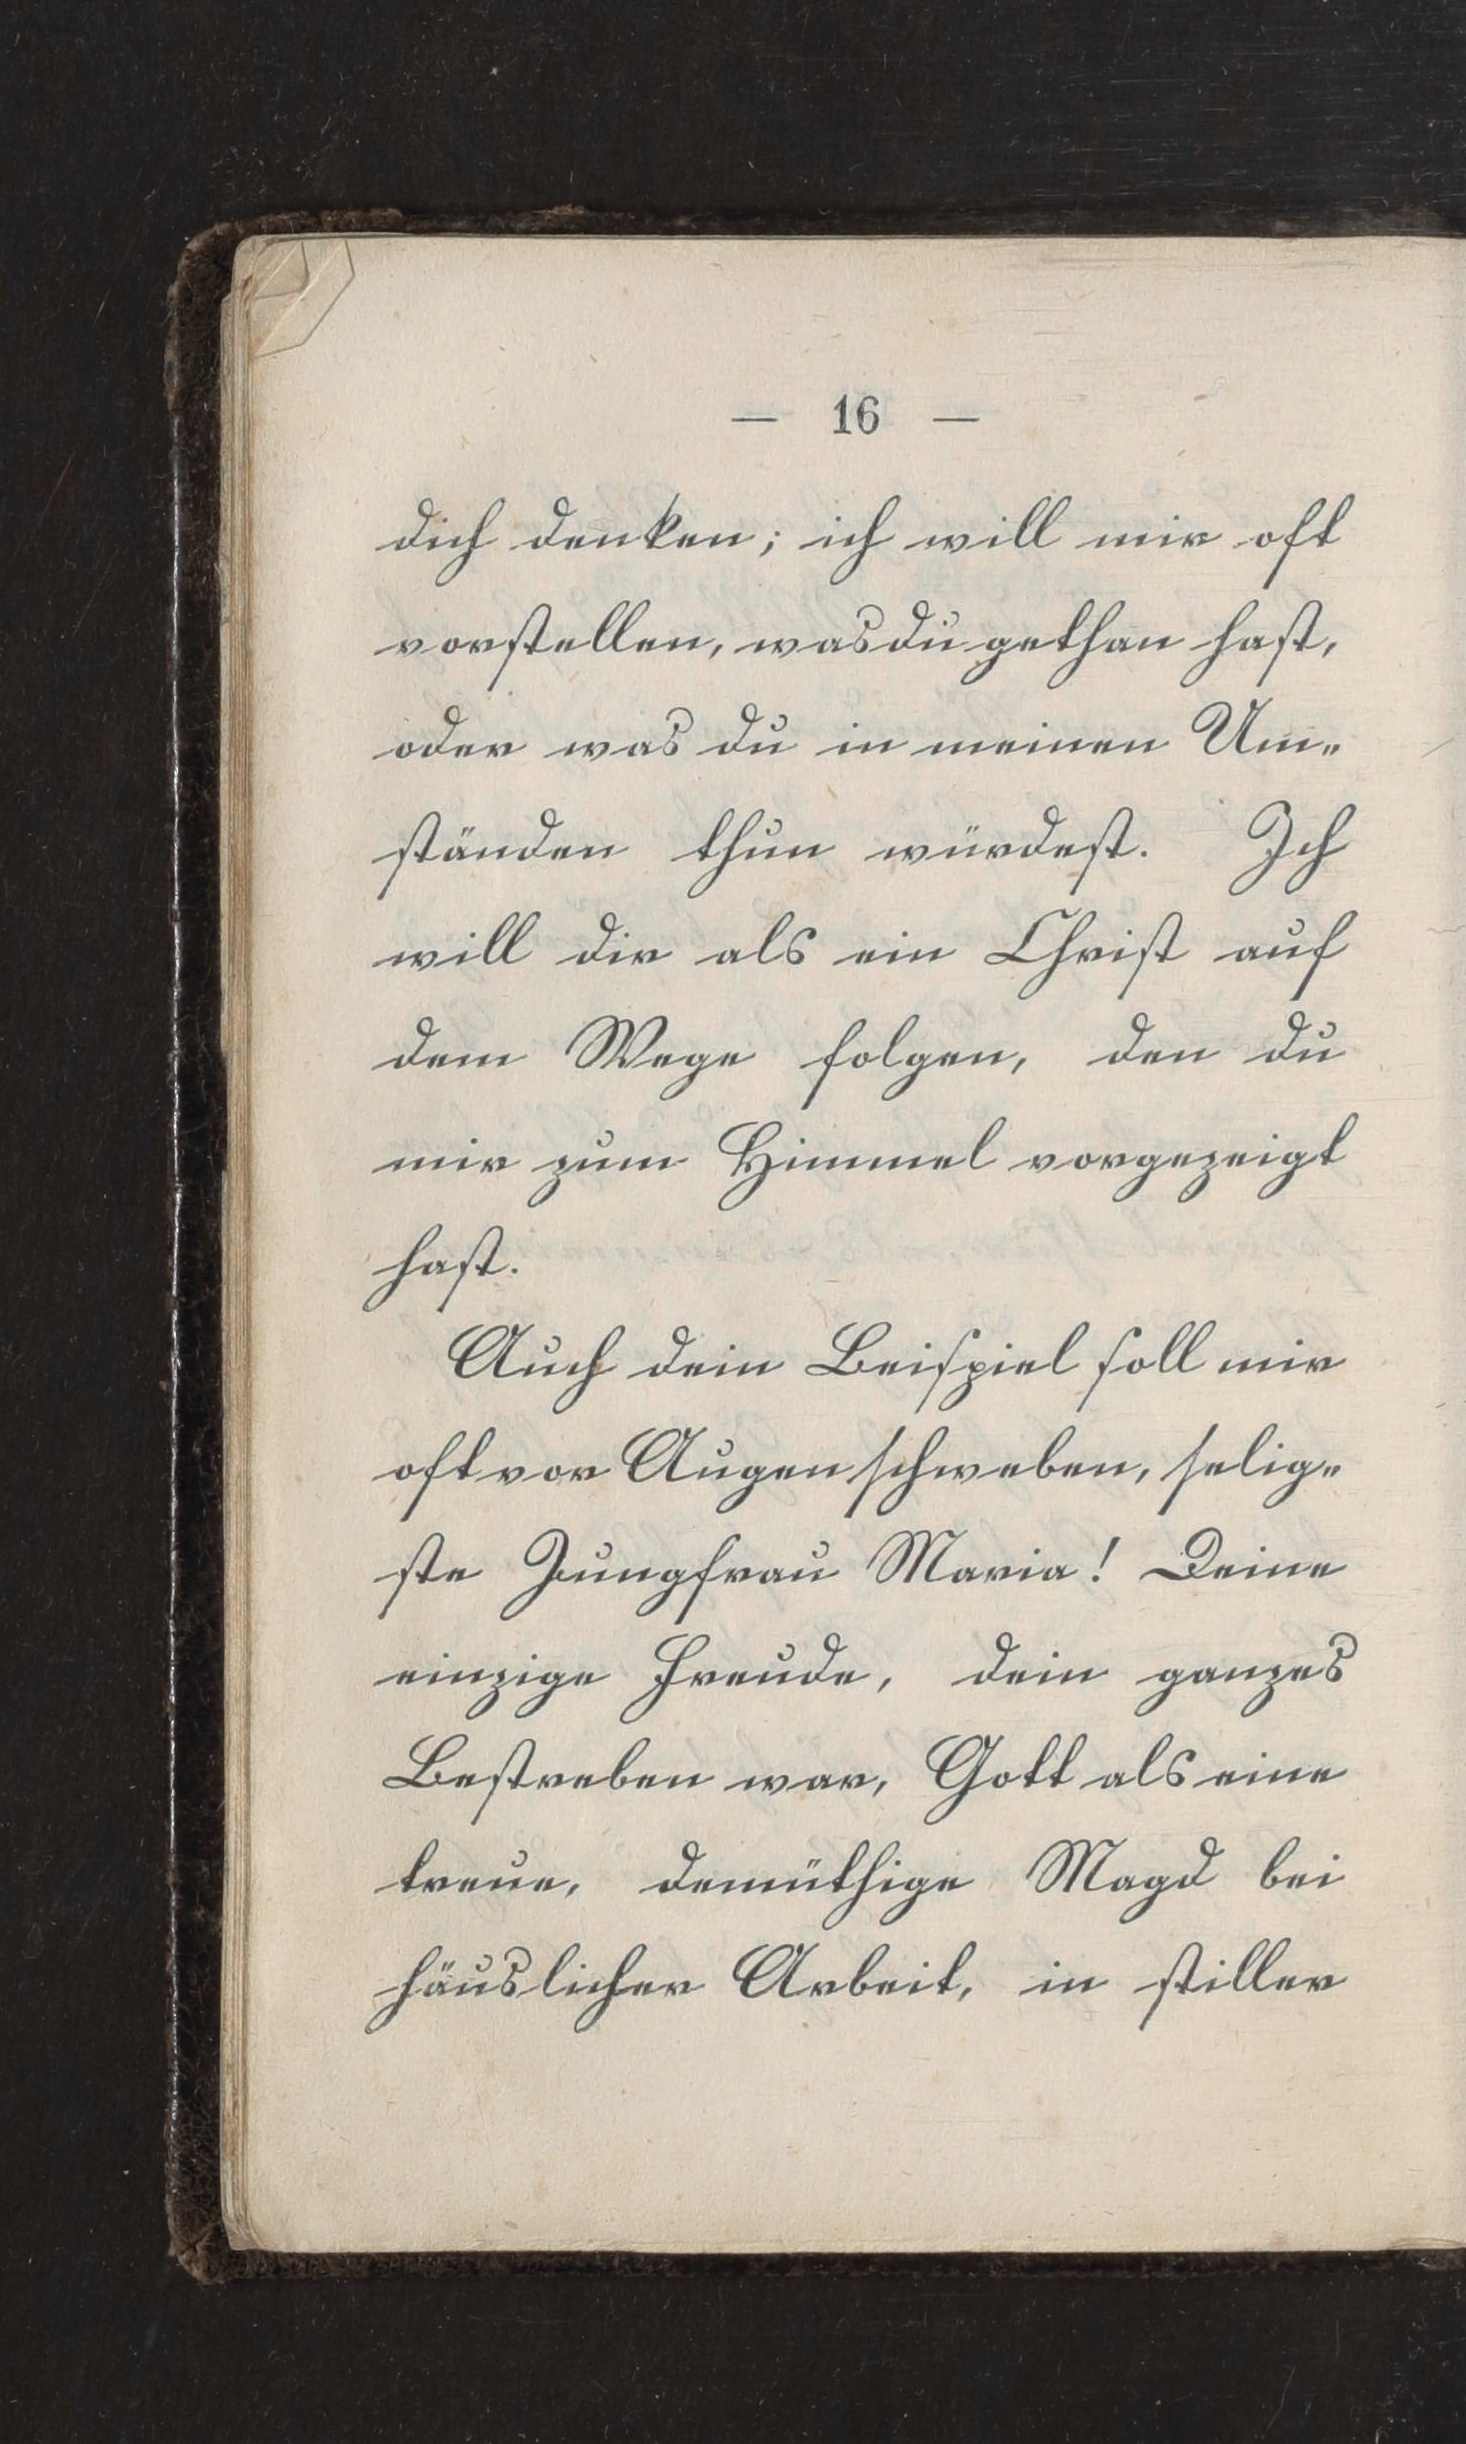 — 16 —
dich denken; ich will mir oft
vorstellen, was du gethan hast,
oder was du in meinen Um-
ständen thun würdest. Ich
will dir als ein Christ auf
dem Wege folgen, den du
mir zum Himmel vorgezeigt
hast.
Auch dein Beispiel soll mir
oft vor Augen schweben, selig-
ste Jungfrau Maria! Deine
einzige Freude, dein ganzes
Bestreben war, Gott als eine
treue, demüthige Magd bei
häuslicher Arbeit, in stiller